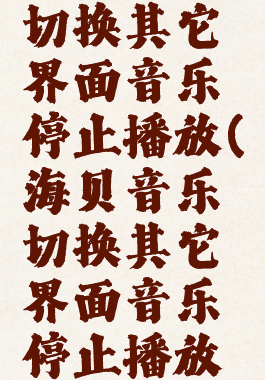 切换其它
界面音乐
停止播放(
海贝音乐
切换其它
界面音乐
停止播放